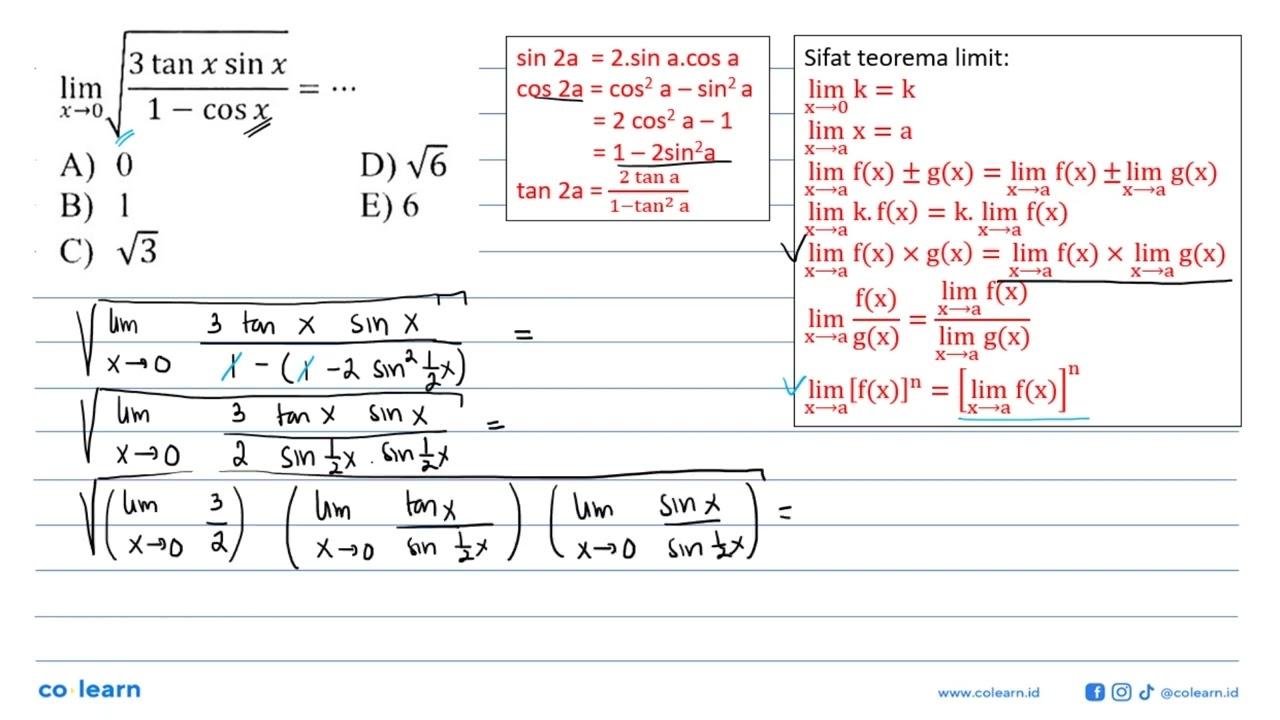 lim x→0 √(3 tan x sin x / 1 − cos x) = ...
A) 0
B) 1
C) √3
D) √6
E) 6
sin 2a = 2.sin a.cos a
cos 2a = cos² a – sin² a
= 2 cos² a – 1
= 1 – 2sin²a
tan 2a = 2 tan a / 1−tan² a
Sifat teorema limit:
lim x→0 k = k
lim x→a x = a
lim x→a f(x) ± g(x) = lim x→a f(x) ± lim x→a g(x)
lim x→a k. f(x) = k. lim x→a f(x)
lim x→a f(x) × g(x) = lim x→a f(x) × lim x→a g(x)
lim x→a f(x)/g(x) = lim x→a f(x) / lim x→a g(x)
lim x→a [f(x)]ⁿ = [lim x→a f(x)]ⁿ
√(lim x→0 3 tan x sin x / 1 - (1 - 2 sin² ½x)) =
√(lim x→0 3 tan x sin x / 2 sin ½x . sin ½x) =
√((lim x→0 3/2) (lim x→0 tan x / sin ½x) (lim x→0 sin x / sin ½x)) =
co learn
www.colearn.id
@colearn.id